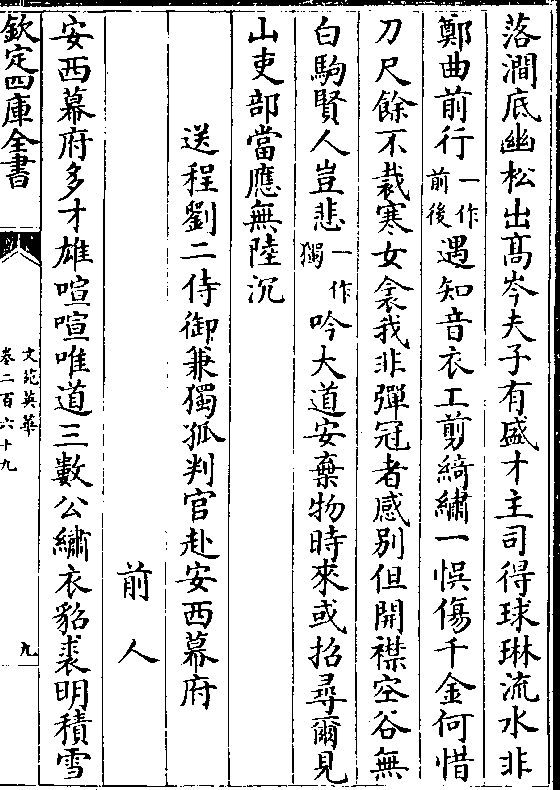 落澗底幽松出髙岑夫子有盛才主司得球琳流水非
鄭曲前行一作前後遇知音衣工剪綺繡一悞傷千金何惜
刀尺餘不裁寒女衾我非彈冠者感别但開襟空谷無
白駒賢人豈悲一作獨吟大道安棄物時來或招尋爾見
山吏部當應無陸沉
送程劉二侍御兼獨孤判官赴安西幕府
前人
安西幕府多才雄喧喧唯道三數公繡衣貂裘明積雪
欽定四庫全書
文苑英華
卷二百六十九
九